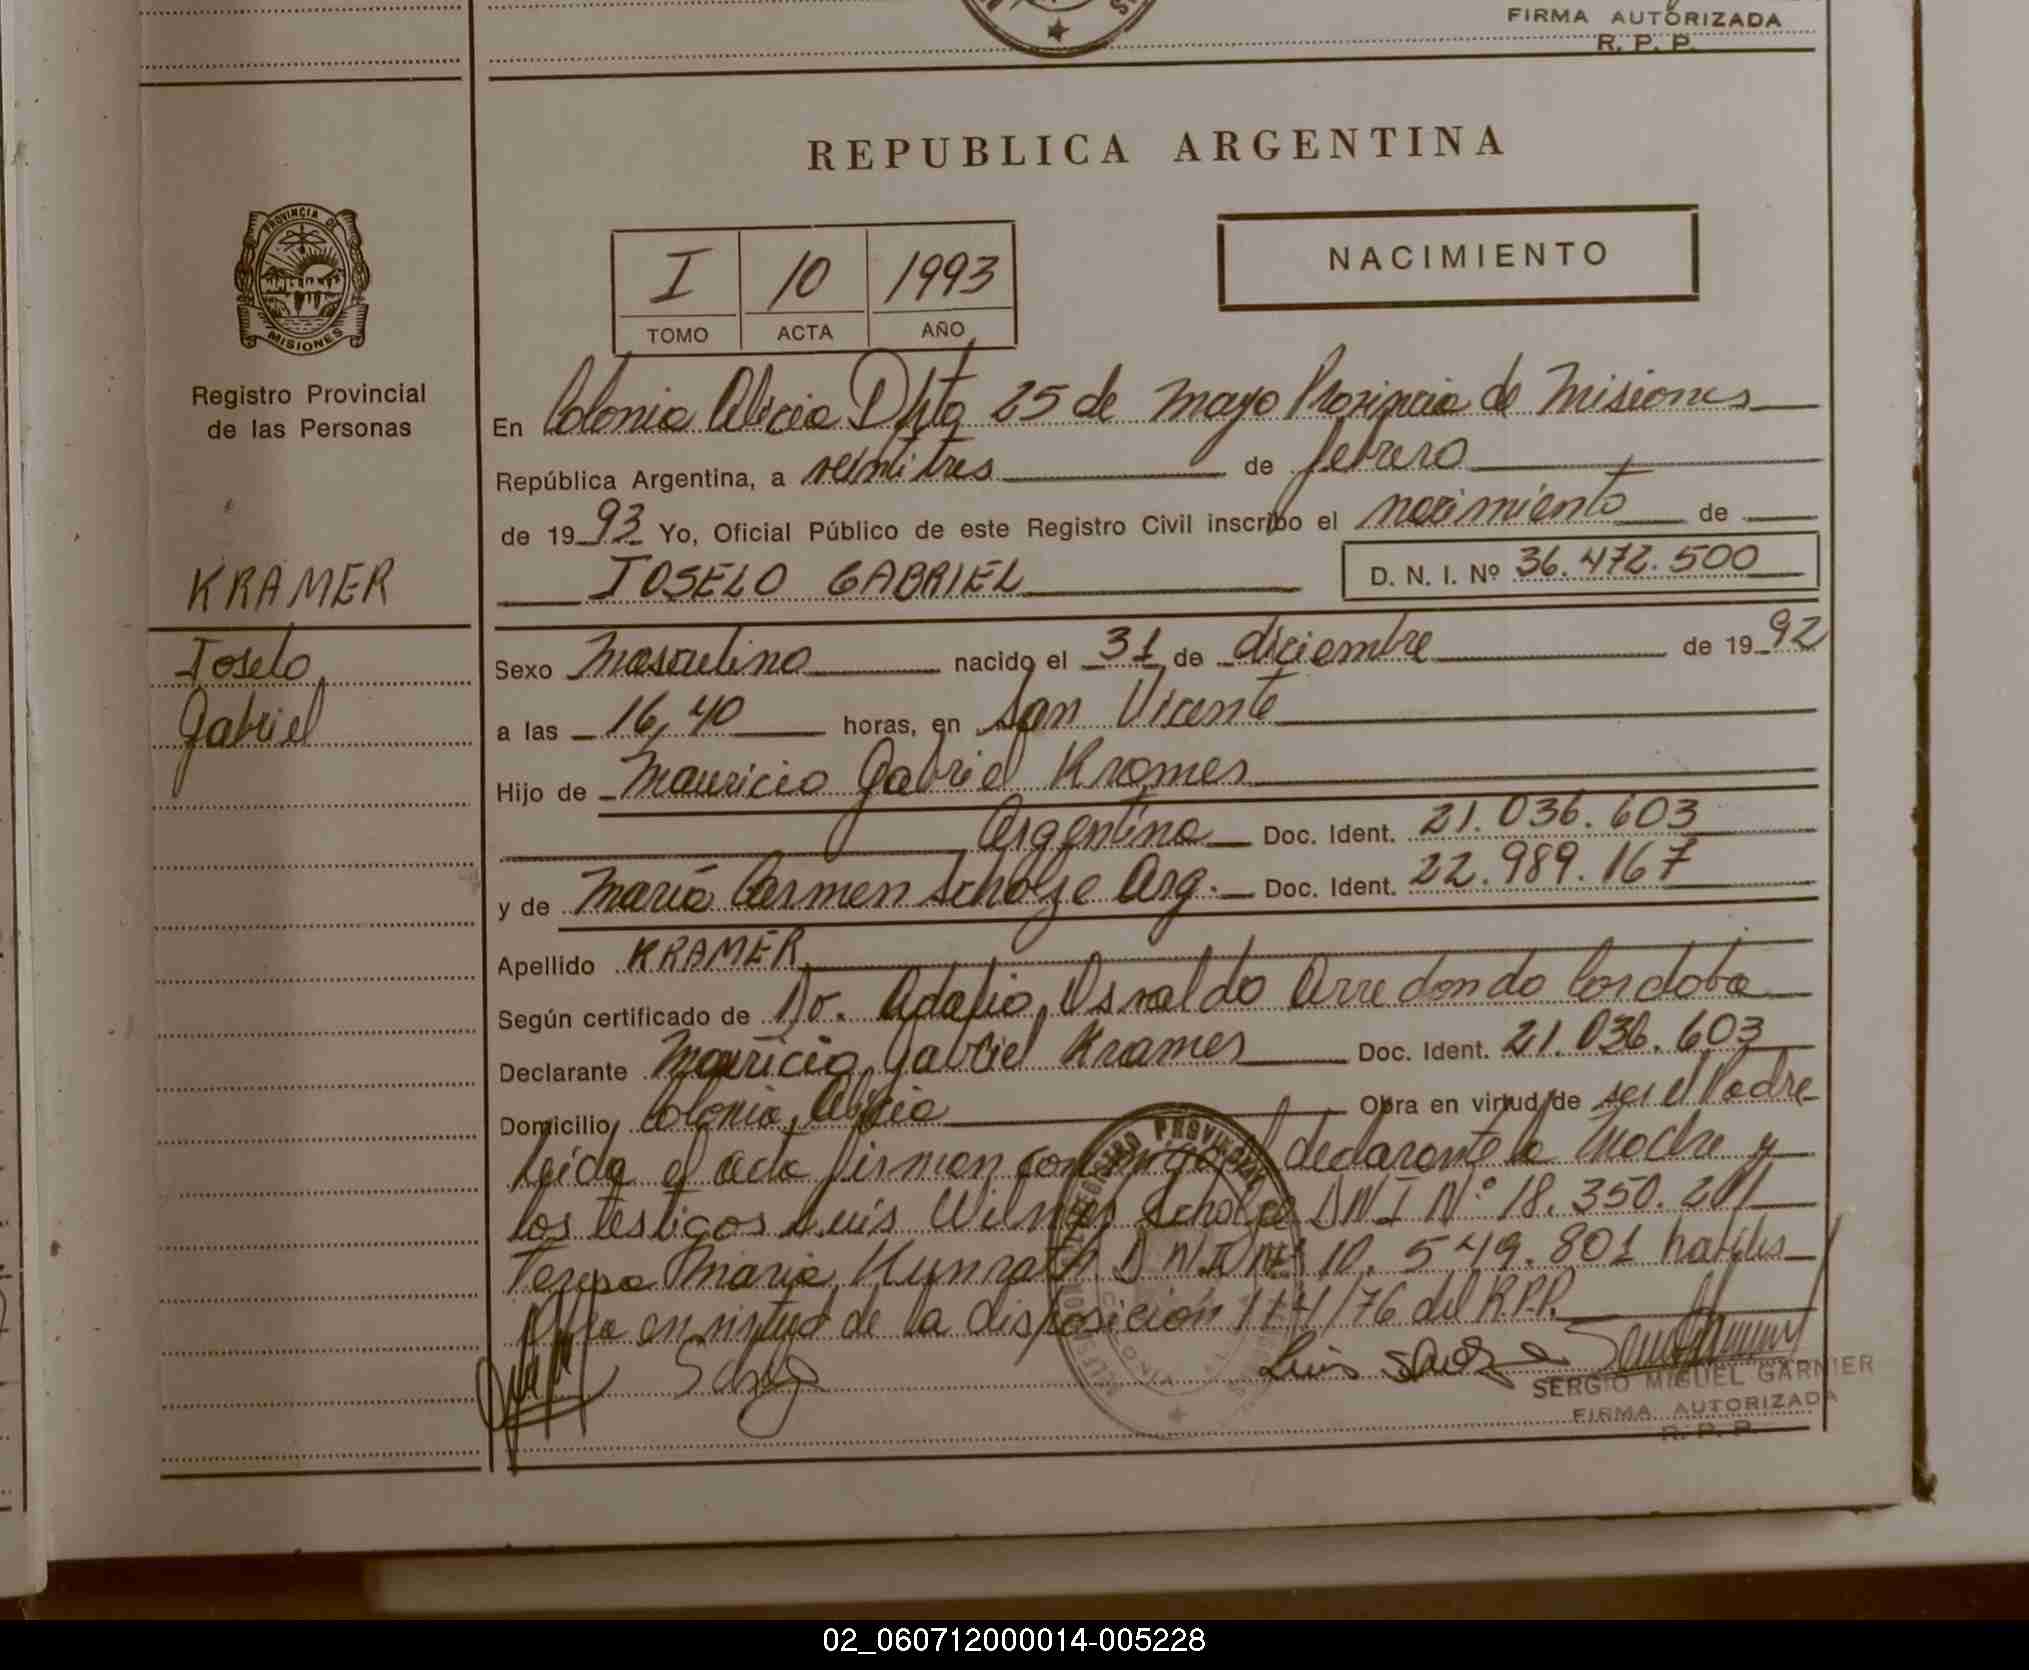 FIRMA AUTORIZADA
R. P. P.
REPUBLICA ARGENTINA
PROVINCIA DE
MISIONES
Registro Provincial
de las Personas
KRAMER
Ioselo
Gabriel
I 10 1993
TOMO ACTA AÑO
NACIMIENTO
En Colonia Alicia Dpto 25 de Mayo Provincia de Misiones
República Argentina, a veintitres de febrero
de 1993 Yo, Oficial Público de este Registro Civil inscribo el nacimiento de
IOSELO GABRIEL D. N. I. Nº 36.472.500
Sexo Masculino nacido el 31 de diciembre de 1992
a las 16,40 horas, en San Vicente
Hijo de Mauricio Gabriel Kramer
Argentino Doc. Ident. 21.036.603
y de María Carmen Scholze Arg. Doc. Ident. 22.989.167
Apellido KRAMER
Según certificado de Dr. Adalio Osvaldo Arredondo Cordoba
Declarante Mauricio Gabriel Kramer Doc. Ident. 21.036.603
Domicilio Colonia Alicia Obra en virtud de ser el Padre
leida el acta firman conmigo el declarante la Madre y
los testigos Luis Wilmar Scholze DNI Nº 18.350.211
Teresa Maria Kunrath DNI Nº 10.549.801 habiles
en virtud de la disposición 114/76 del R.P.P.
REGISTRO PROVINCIAL DE
Luis
SERGIO MIGUEL GARNIER
FIRMA AUTORIZADA
R. P. P.
02_060712000014-005228